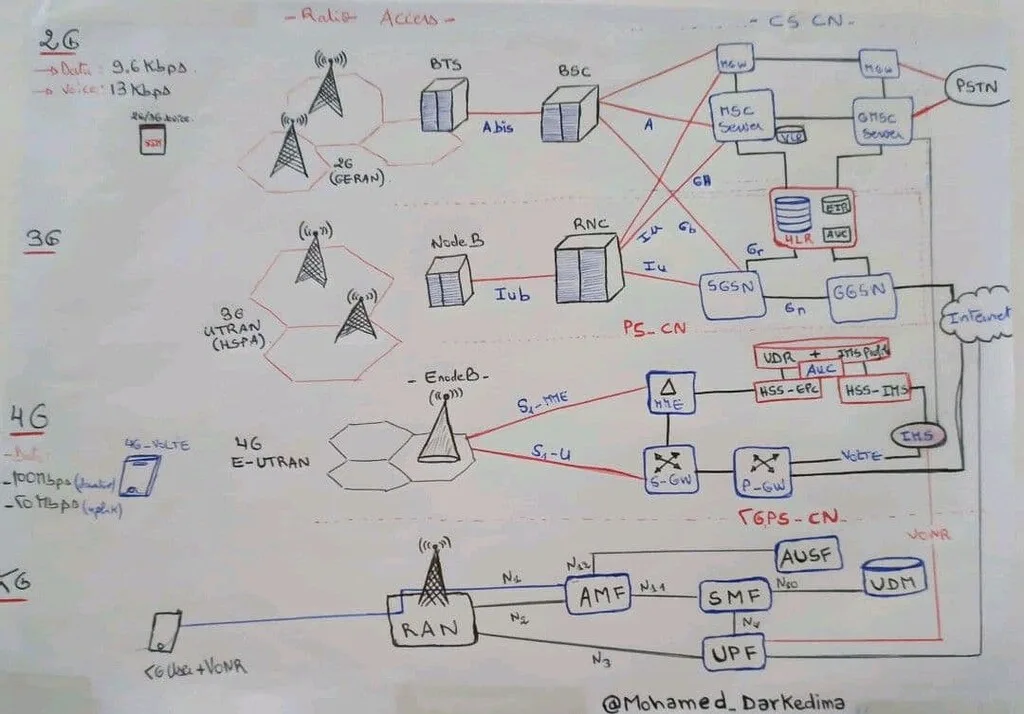 - Radio Access -
- CS CN -
2G
→ Data : 9.6 Kbps
→ Voice : 13 Kbps
2G/3G device
SIM
BTS
BSC
MGW
MGW
PSTN
Abis
A
MSC
Server
VLR
GMSC
Server
2G
(GERAN)
GA
EIR
AUC
HLR
3G
Node B
RNC
Iu
Gb
Gr
Iub
Iu
SGSN
Gn
GGSN
Internet
3G
UTRAN
(HSPA)
PS_CN
UDR +
AUC
HSS-EPC
HSS-IMS
- EnodeB -
S1-MME
MME
IMS
4G
4G-VOLTE
- 100Mbps
- 50Mbps (uplink)
4G
E-UTRAN
S1-U
S-GW
P-GW
VOLTE
5GPS-CN
VONR
5G
AUSF
N12
N1
AMF
N11
SMF
N10
UDM
N2
RAN
N4
N3
UPF
5G User + VONR
@Mohamed_Darkedima